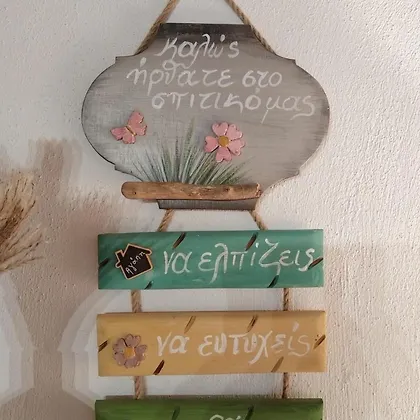 καλώς
ήρθατε στο
σπιτικό μας
Αγάπη
να ελπίζεις
να ευτυχείς